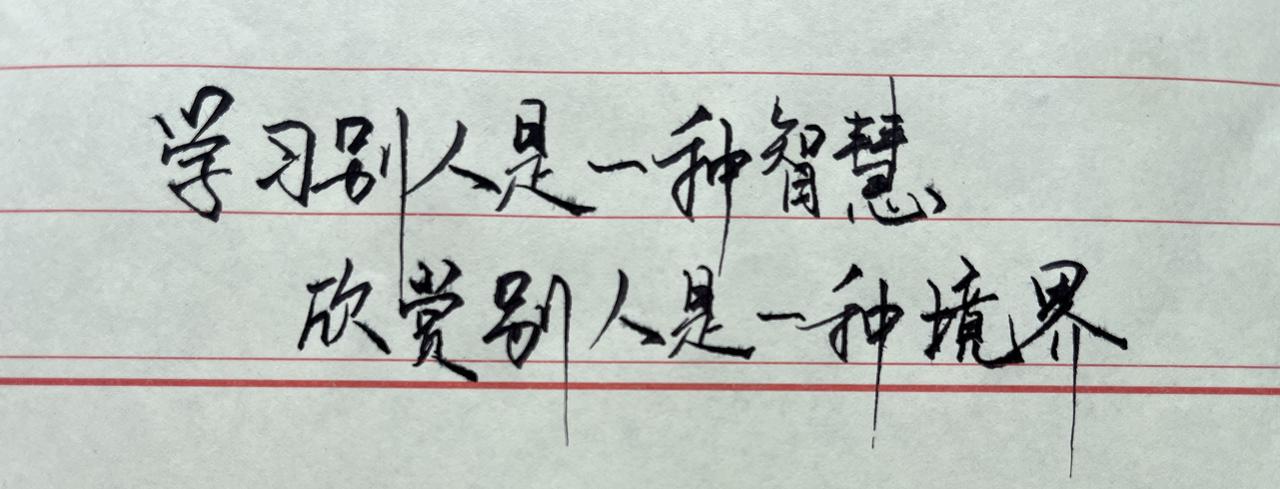 学习别人是一种智慧、
欣赏别人是一种境界